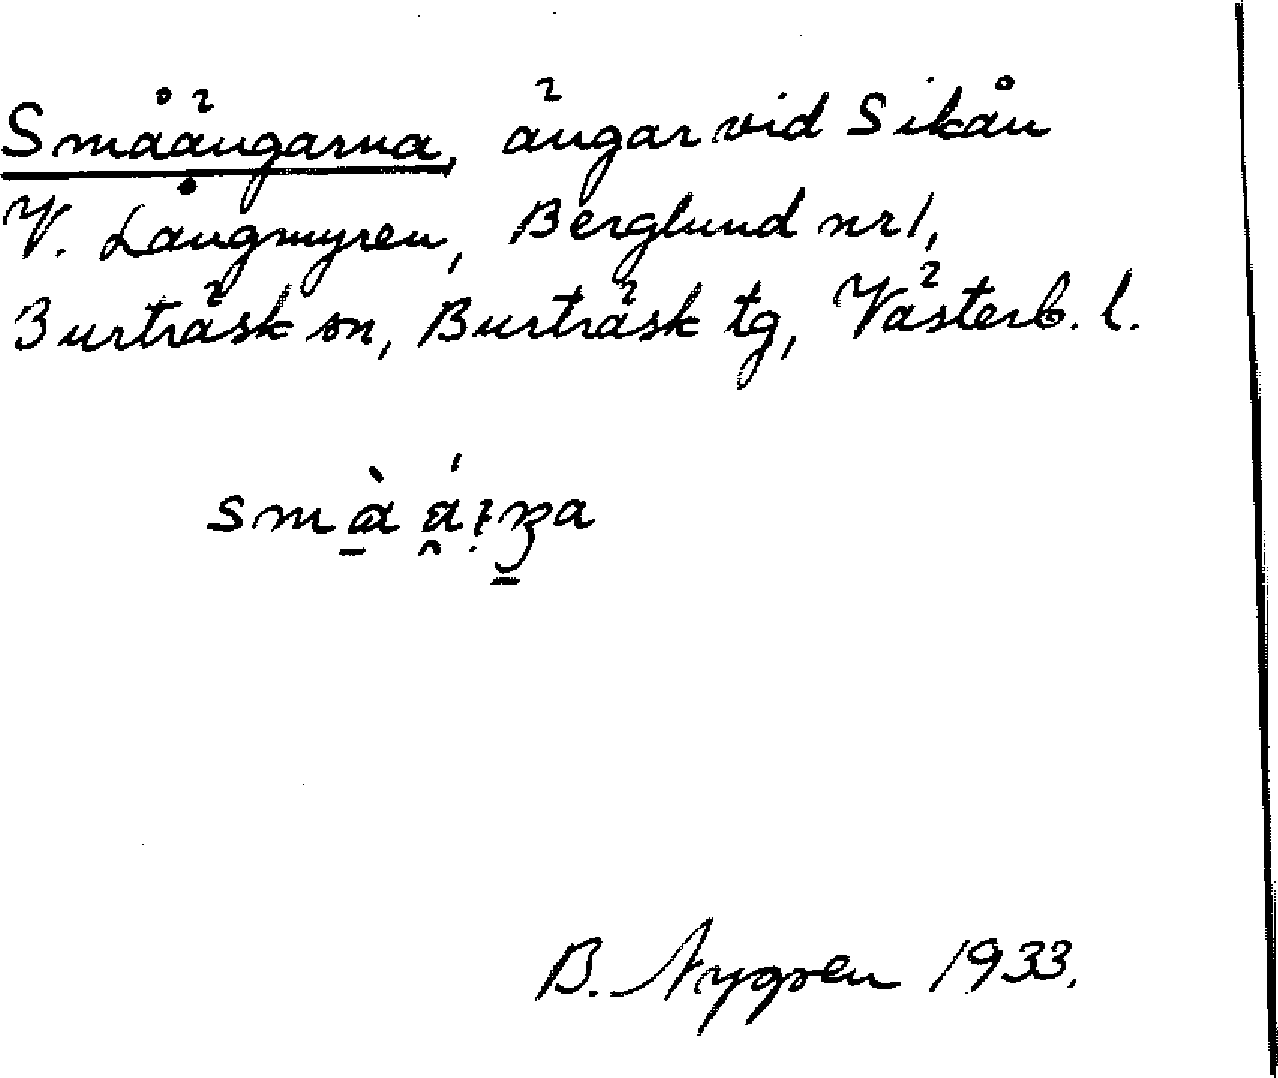 Småängarna, ängar vid Sikån
V. Långmyren, Berglund nr 1,
Burträsk sn, Burträsk tg, Västerb. l.
B. Nygren 1933.